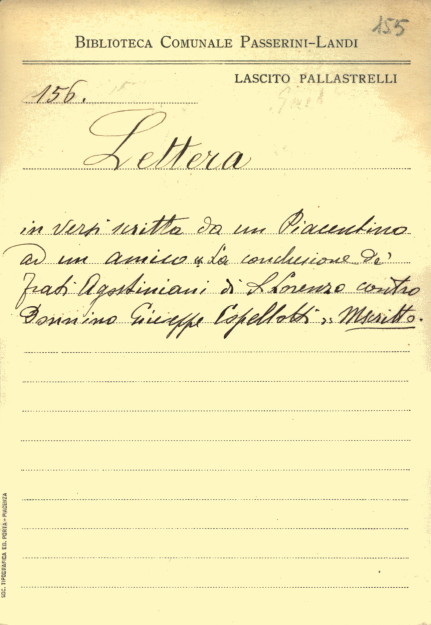 155
BIBLIOTECA COMUNALE PASSERINI-LANDI
LASCITO PALLASTRELLI
156.
Lettera
in versi scritta da un Piacentino
ad un amico « La conclusione de'
frati Agostiniani di S. Lorenzo contro
Giuseppe Capellotti » Mscritto.
SOC. TIPOGRAFICA ED. PORTA - PIACENZA